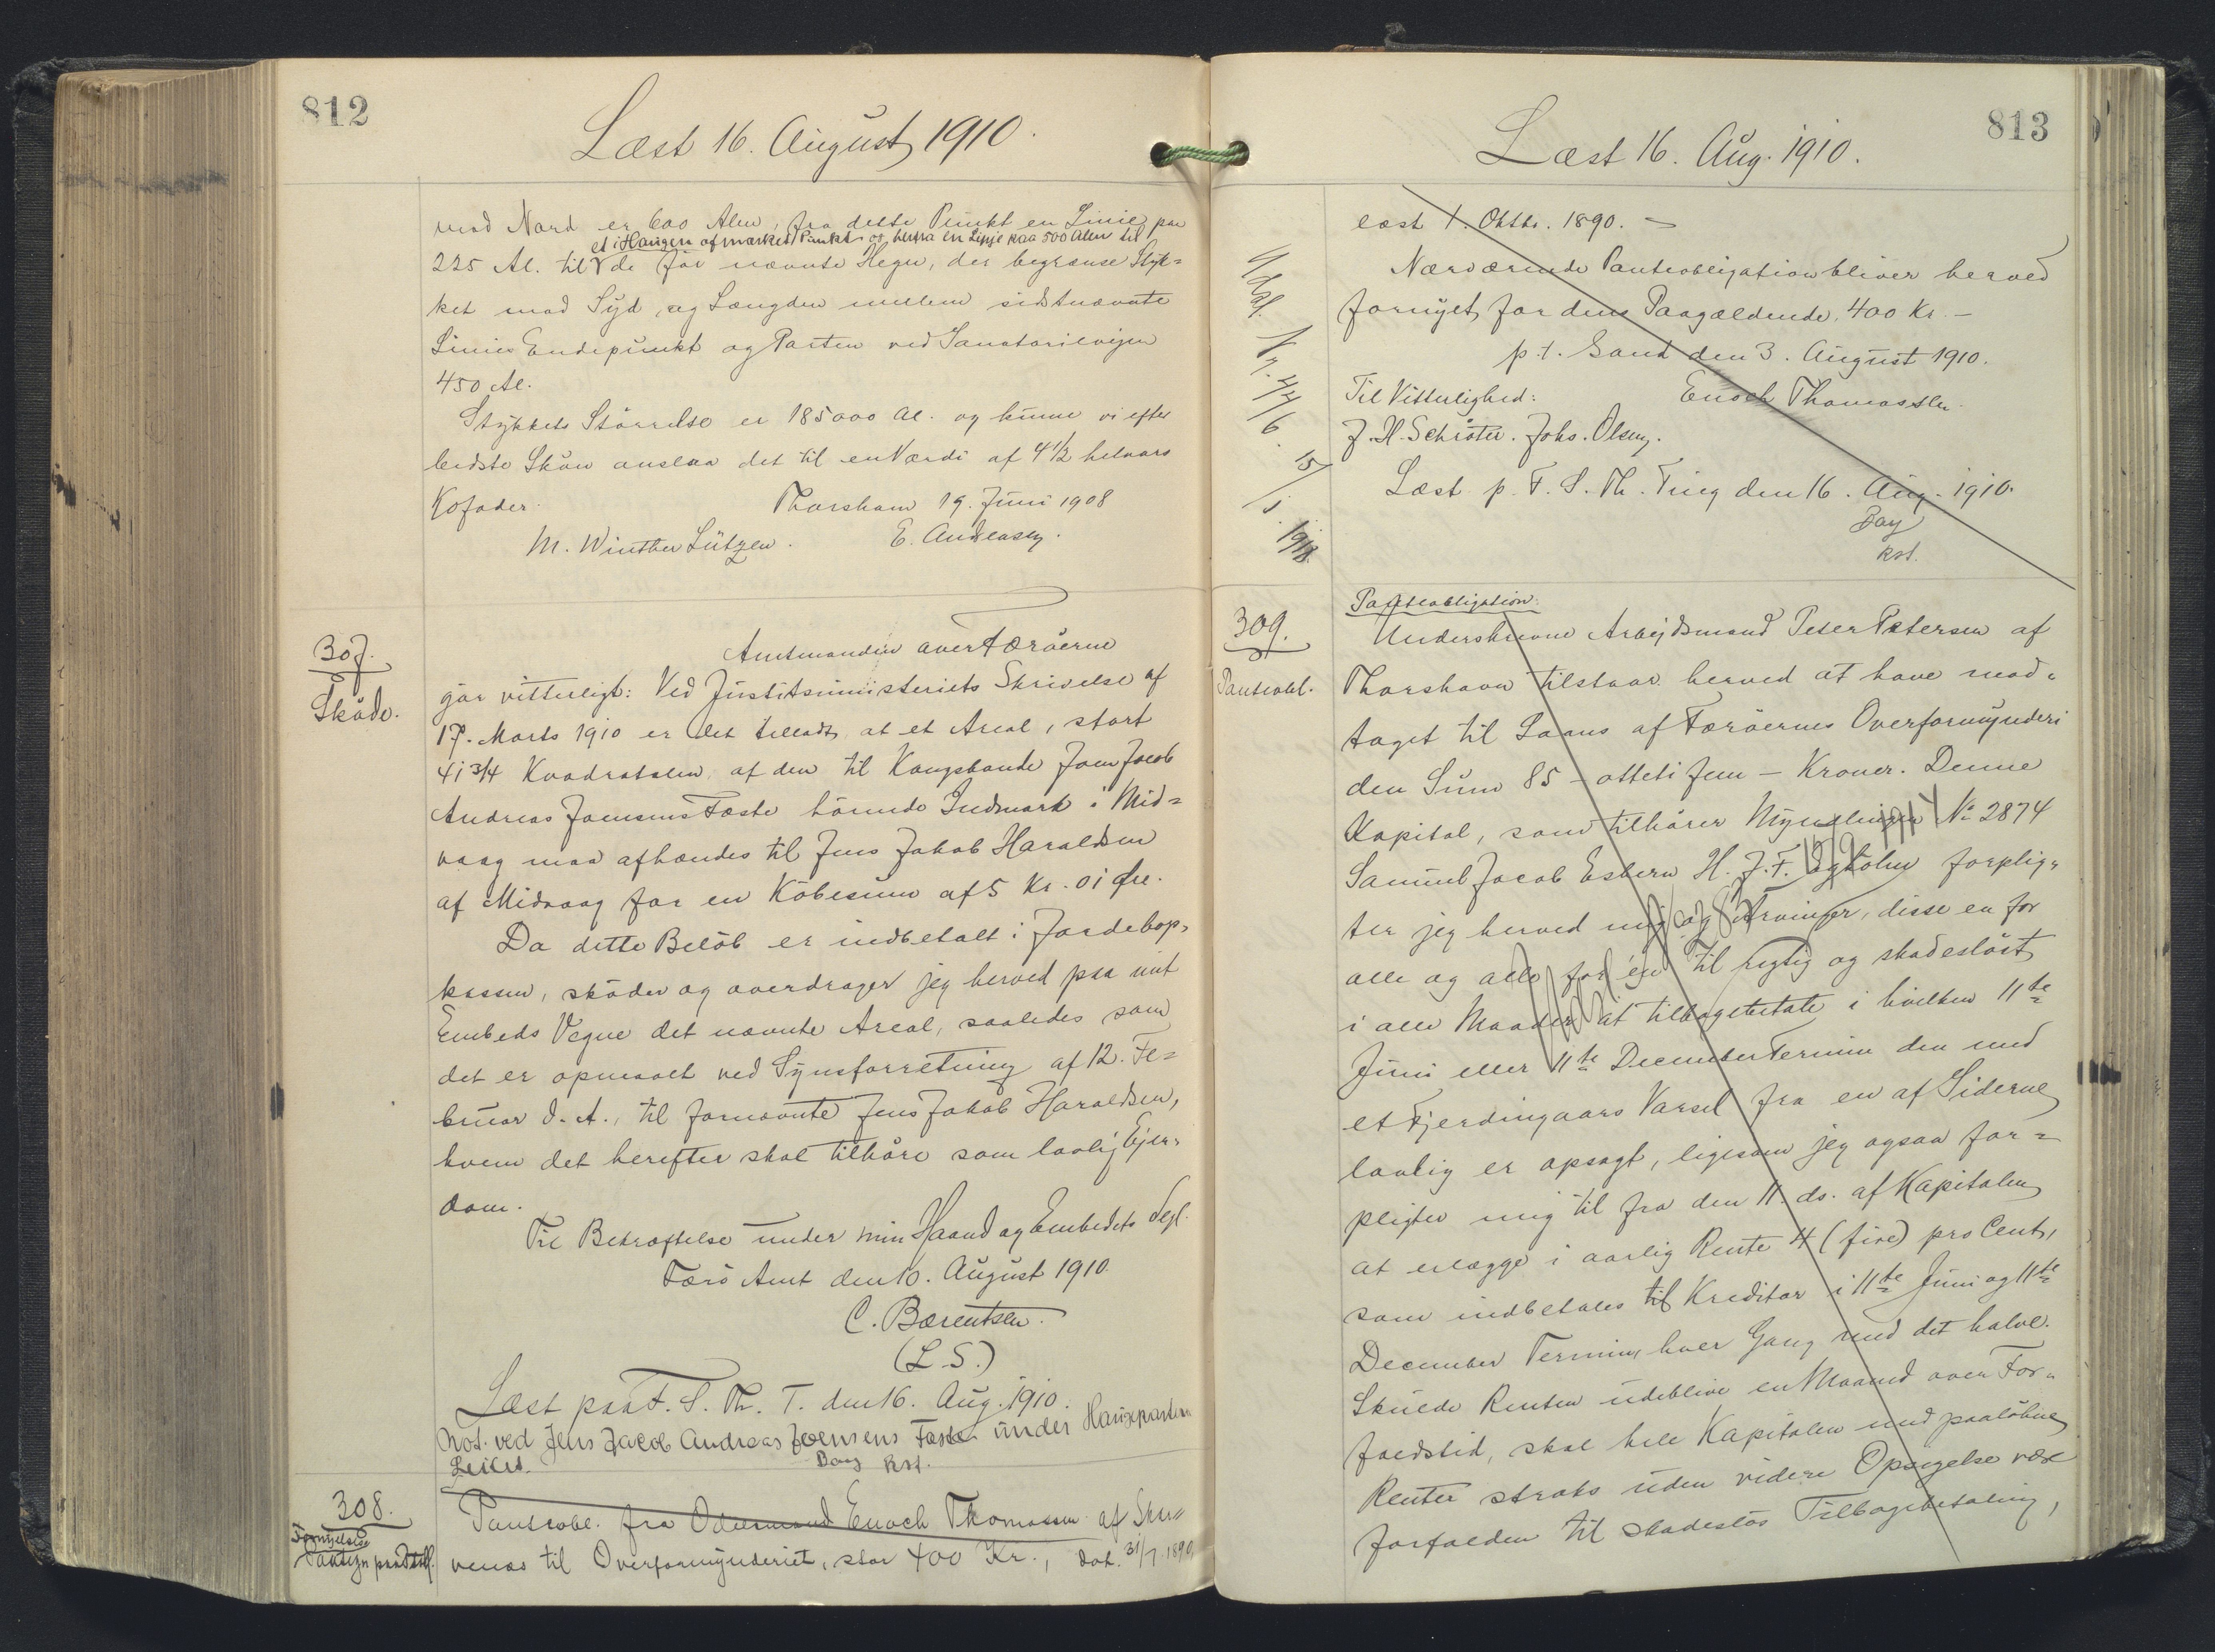 812
Læst 16. August 1910.
mod Nord er 600 Alen, fra dette Punkt en Linie paa
et i Haugen afmærket Punkt og herfra en Linje paa 500 Alen til
225 Al. til de før nævnte Hegn, der begrænse Styk=
ket mod Syd og Længden mellem sidstnævnte
Linies Endepunkt og Porten ved Sanatorievejen
450 Al.
Stykkets Størrelse er 185000 Al. og kunne vi efter
bedste Skøn anslaa det til en Værdi af 4½ helaars
Kofoder.
Thorshavn 19. Juni 1908
M. Winther Lützen. E. Andreasen.
307.
Skøde.
Amtmanden over Færøerne
gør vitterligt: Ved Justitsministeriets Skrivelse af
17. Marts 1910 er det tilladt, at et Areal, stort
41 3/4 Kvadratalen af den til Kongsbonde Joen Jacob
Andreas Joensens Fæste hørende Indmark i Mid=
vaag maa afhændes til Jens Jakob Haraldsen
af Midvaag for en Købesum af 5 Kr. 01 Øre.
Da dette Beløb er indbetalt i Jordebogs
kassen, skøder og overdrager jeg herved paa mit
Embeds Vegne det nævnte Areal, saaledes som
det er opmaalt ved Synsforretning af 12. Fe=
bruar d. A., til fornævnte Jens Jakob Haraldsen,
hvem det herefter skal tilhøre som lovlig Ejen=
dom.
Til Bekræftelse under min Haand og Embedets Segl.
Færø Amt den 10. August 1910.
C. Bærentsen.
(L.S.)
Læst paa F. S. Th. T. den 16. Aug. 1910.
Not. ved Jens Jacob Andreas Joensens Fæste under Hauge
Bay Kst.
308.
Fornyelse
Pantobl. fra Odelsmand Enoch Thomassen af Sku=
venæs til Overformynderiet, stor 400 Kr., dat. 31/7 1890,
813
Læst 16. Aug. 1910.
læst 1. Oktbr. 1890. –
Nærværende Panteobligation bliver herved
fornyet for dens Paagældende, 400 Kr. –
p.t. Sand den 3. August 1910.
Til Vitterlighed: Enoch Thomassen.
J. H. Schrøter. Johs. Olsen.
Læst p. F. S. Th. Ting den 16. Aug. 1910.
Bay
Kst.
Udsl.
309.
Panteobl.
Panteobligation.
Underskrevne Arbejdsmand Peter Petersen af
Thorshavn tilstaar herved at have mod=
taget til Laans af Færøernes Overformynderi
den Sum 85 – ottetifem – Kroner. Denne
Kapital, som tilhører Myndlingen No 2874
Samuel Jacob Esbern H. J. F. forplig=
ter jeg herved mig og Arvinger, disse en for
alle og alle for én til rigtig og skadesløst
i alle Maader at tilbagebetale i hvilken 11te
Juni eller 11te December Termin den med
et Fjerdingaars Varsel fra en af Siderne
lovlig er opsagt, ligesom jeg ogsaa for=
pligter mig til fra den 11. ds. af Kapitalen
at erlægge i aarlig Rente 4 (fire) pro Cent,
som indbetales til Kreditor i 11te Juni og 11te
December Termin, hver Gang med det halve.
Skulde Renten udeblive en Maaned over For=
faldstid, skal hele Kapitalen med paaløbne
Renter straks uden videre Opsigelse være
forfalden til skadesløs Tilbagebetaling,